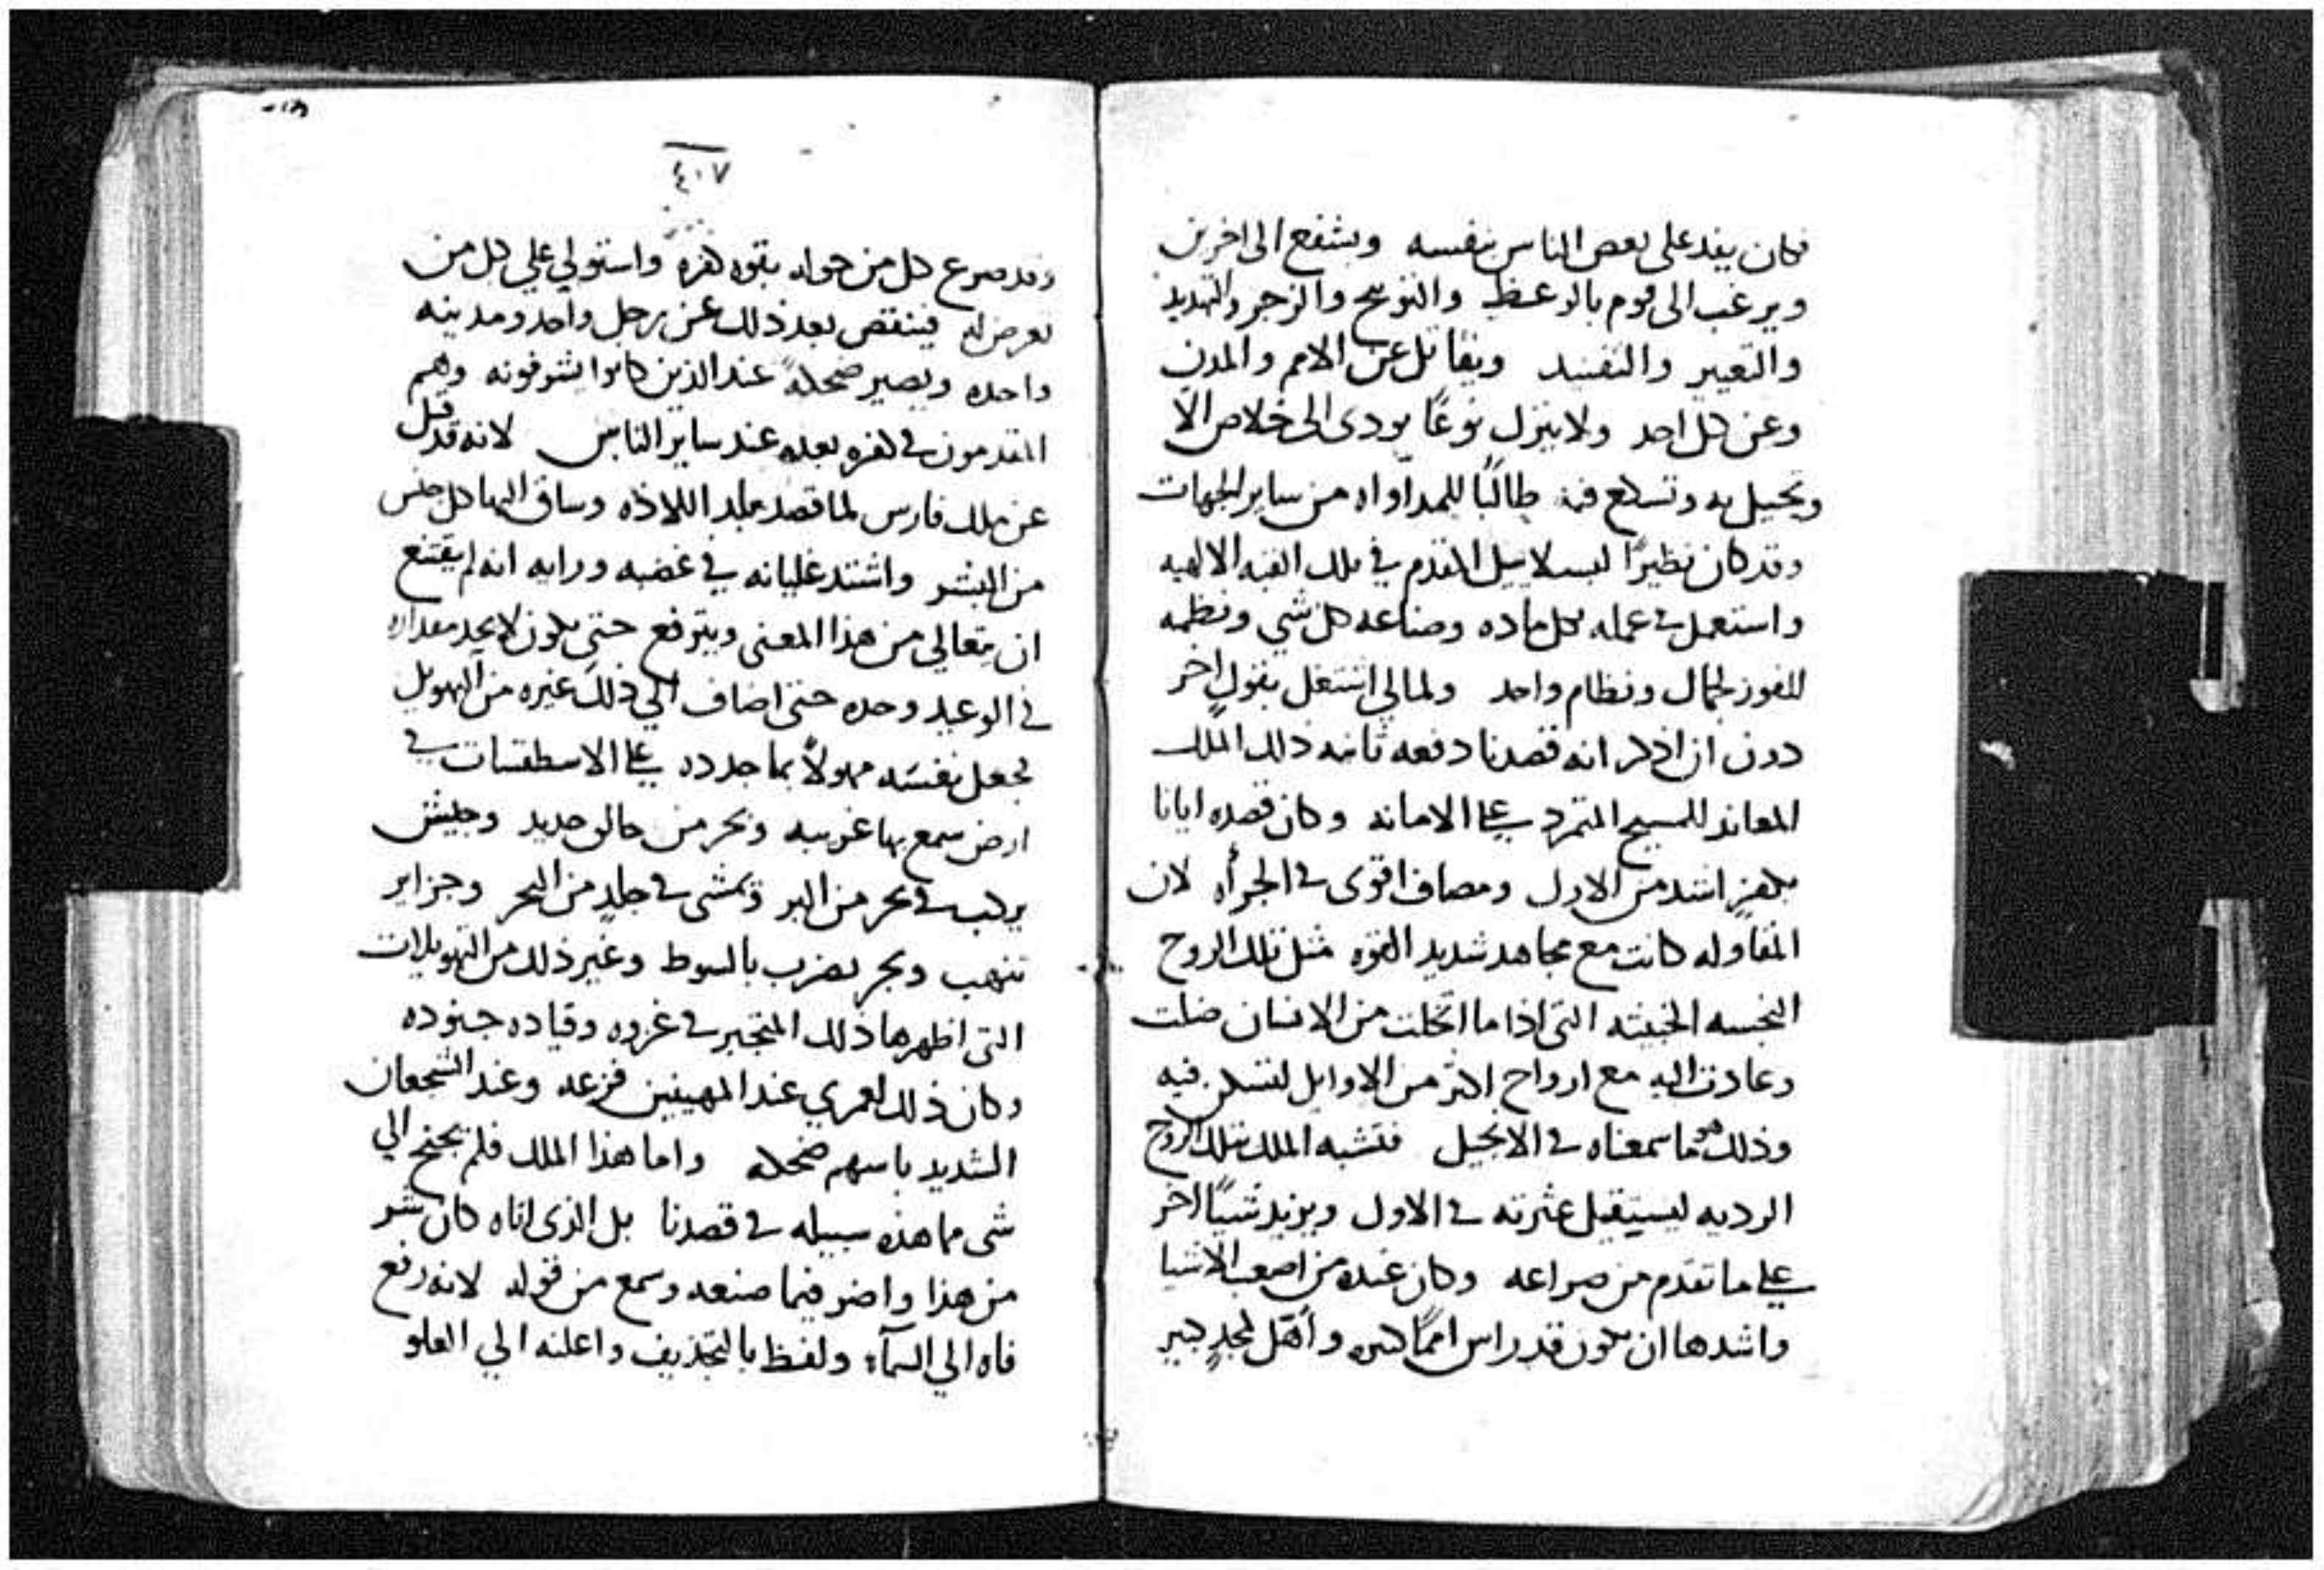 فكان يفد على بعض الناس بنفسه ويشفع الى اخرين
ويرغب الى قوم بالوعظ والتوبيخ والزجر والتهديد
والتعيير والتفنيد ويقاتل عن الامم والمدن
وعن كل احد ولا ينزل نوعًا يودى الى خلاص الا
ويحيل به طالبًا للمداواه من ساير الجهات
وقد كان نظيرًا لبسلاييل المقدم في تلك القبه الالهيه
واستعمل في عمله كل ماده وصناعه كل شي ونظمه
للفوز لجمال ونظام واحد ولما لي اشتغل بقول اخر
دون ان اذكر انه قصدنا دفعه ثانيه ذلك الملك
المعاند للمسيح المتمرد على الامانه وكان قصده ايانا
بكفر اشد من الاول ومصاف اقوى في الجرأه لان
المقاوله كانت مع مجاهد شديد القوه مثل تلك الروح
النجسه الخبيثه التى اذا ما اتخلت من الانسان ضلت
وعادت اليه مع ارواح اكثر من الاوايل لتسكن فيه
وذلك هو ما سمعناه في الانجيل فتشبه الملك بتلك الروح
الرديه ليستقيل عثرته في الاول ويزيد شيًا اخر
على ما تقدم من صراعه وكان عنده من اصعب الاشيا
واشدها ان يكون قد راس اممًا كثيره وأهل لمجدٍ كبير
٤٠٧
وقد صرع كل من حوله بقوه كفره واستولي علي كل من
تعرض له فينتقص بعد ذلك عن رجل واحد ومدينه
واحده ويصير ضحكةً عند الذين كانوا يشوقونه وهم
المقدمون في كفره بعده عند ساير الناس لانه قد قيل
عن ملك فارس لما قصد بلد اللاذه وساق اليها كل جنس
من البشر واشتد غليانه في غضبه ورايه انه لم يقتنع
ان يتعالي من هذا المعنى ويترفع حتي يكون لا يحد مقداره
في الوعيد وحده حتى اضاف الي ذلك غيره من التهويل
لجعل نفسَه مهولاً بما جدده على الاسطقسات في
ارض سمع بها غريبه وبحر من خالق جديد وجيش
يركب في بحر من البر ويمشى في جلد من البحر وجزاير
تنهب وبحر يضرب بالسوط وغير ذلك من التهويلات
التى اظهرها ذلك المتجبر في غزوه وقياده جنوده
وكان ذلك لعمري عند المهينين فزعه وعند الشجعان
الشديد باسهم ضحكه واما هذا الملك فلم يجنح الي
شى مما هذه سبيله في قصدنا بل الذى اتاه كان شر
من هذا واضر فيما صنعه وسمع من قوله لانه رفع
فاه الي السمآء ولفظ بالتجذيف واعلنه الي العلو